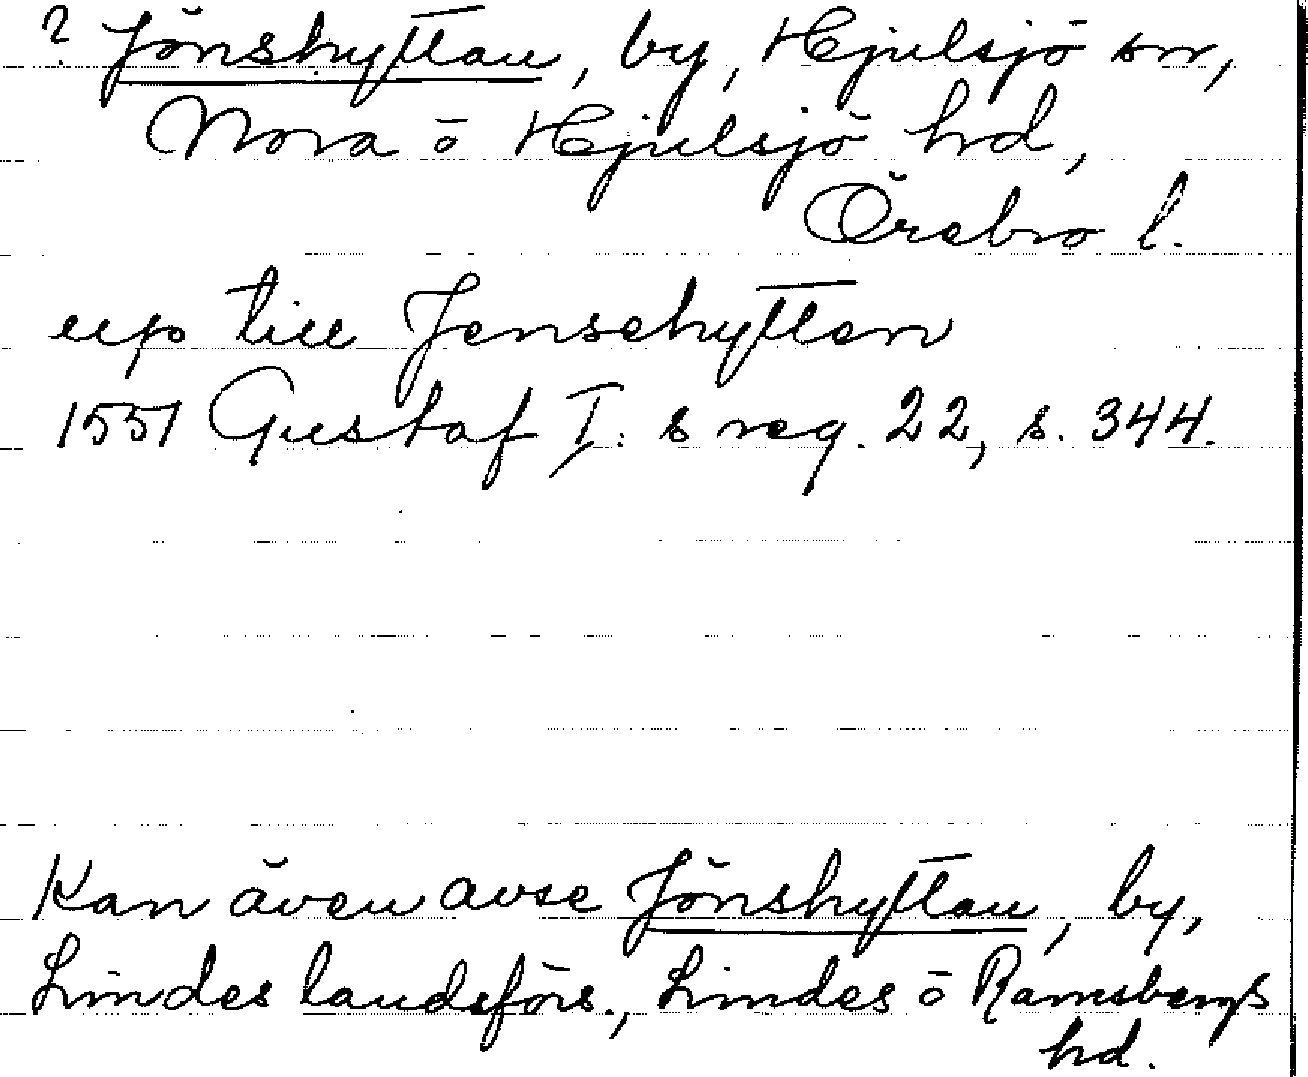 ? Jönshyttan, by, Hjulsjö sn,
Nora ö Hjulsjö hd,
Örebro l.
up till Jensehytten
1551 Gustaf I:s reg. 22, s. 344.
Kan även avse Jönshyttan, by,
Lindes landsförs., Lindes ö Ramsbergs
hd.